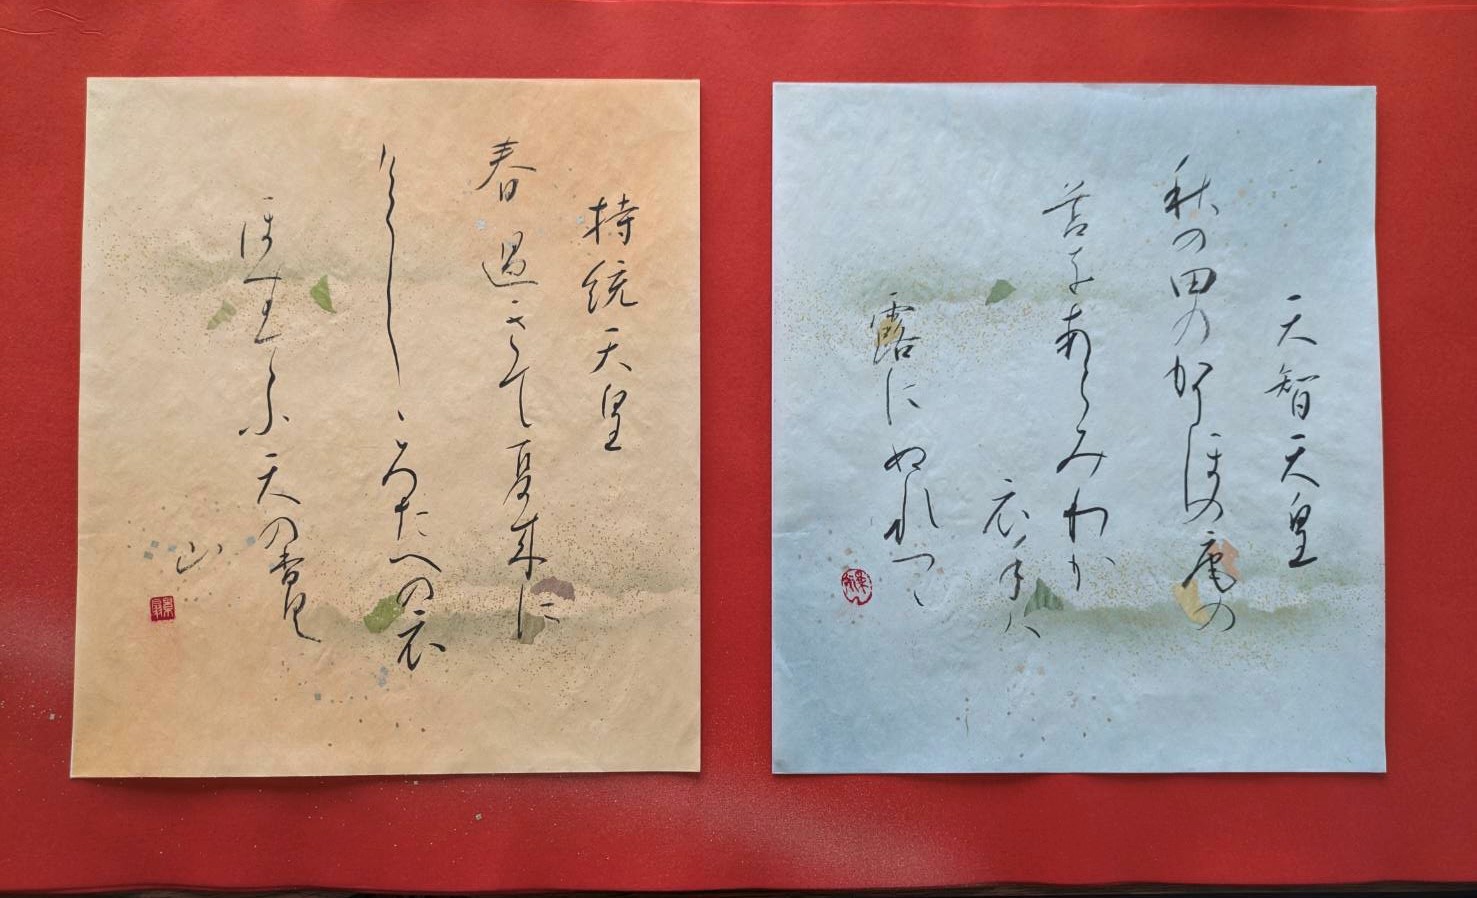 天智天皇
秋の田のかりほの庵の
苫をあらみわか
衣手ハ
露にぬれつゝ
持統天皇
春過きて夏来に
けらしゝろたへの衣
ほすてふ天の香具
山